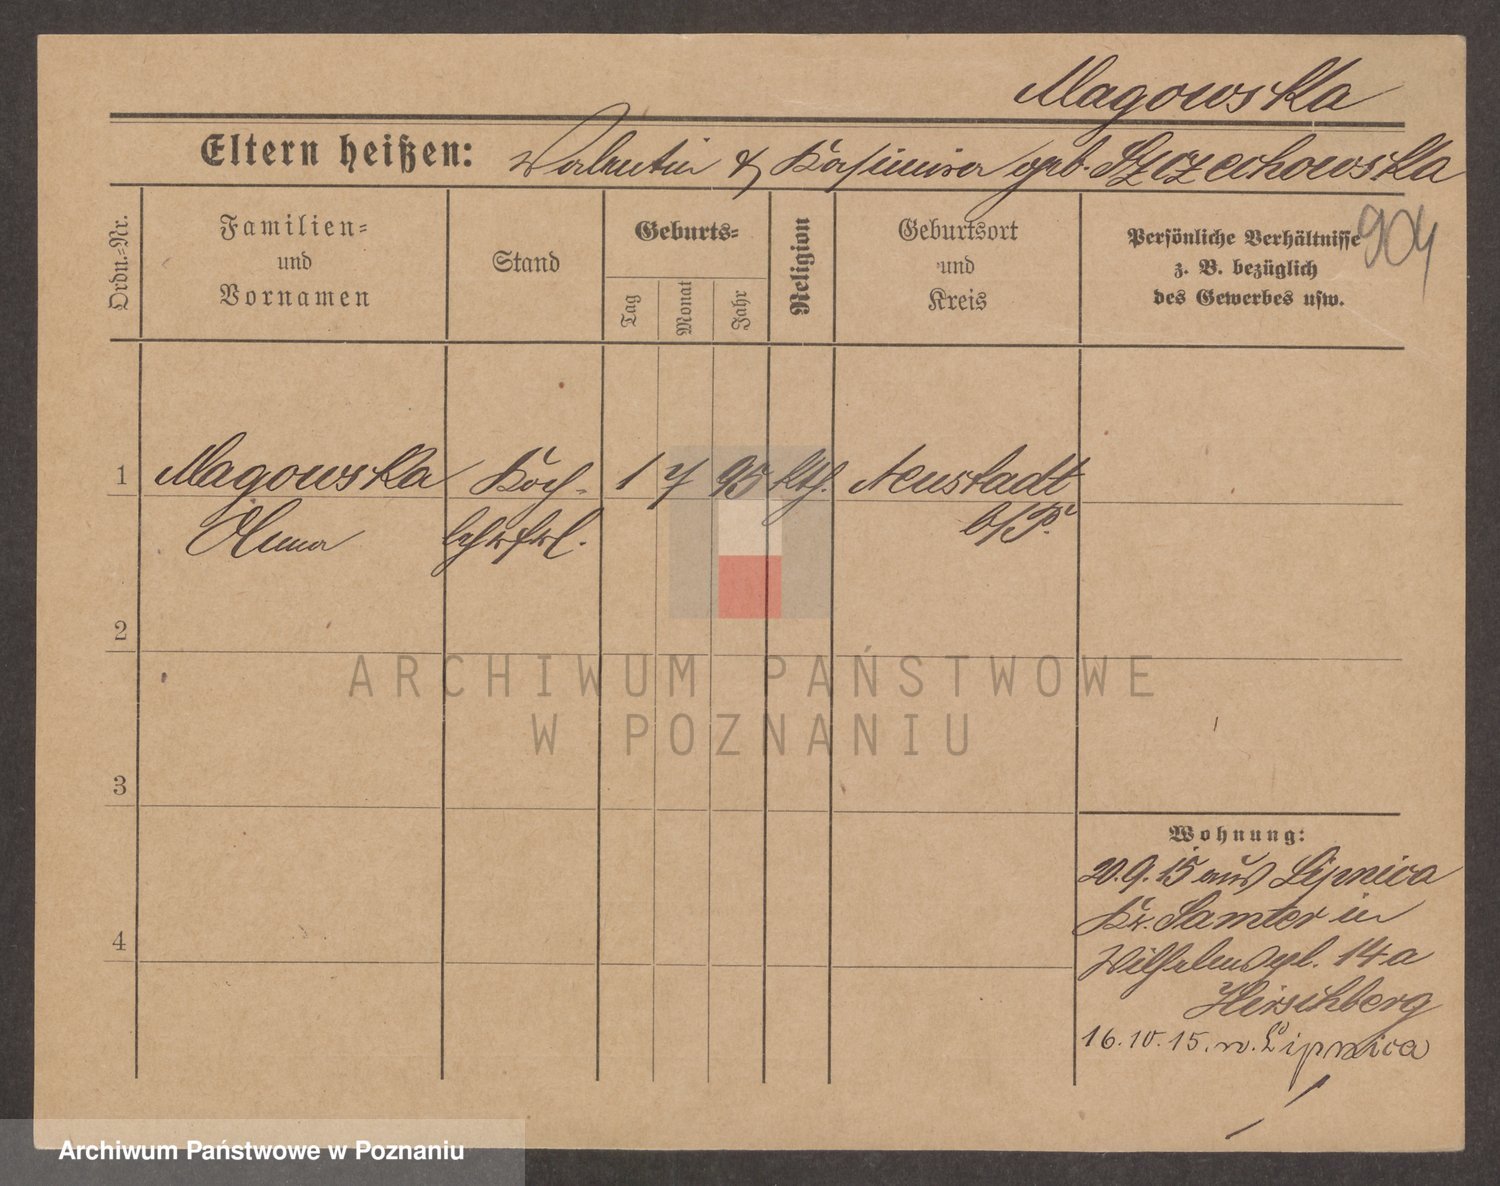 Magowska
Eltern heißen: Valentin & Kasimira geb. Szczechowska
904
Ordn.-Nr.
Familien-
und
Vornamen
Stand
Geburts-
Tag
Monat
Jahr
Religion
Geburtsort
und
Kreis
Persönliche Verhältnisse
z. B. bezüglich
des Gewerbes usw.
1
Magowska Köch. 1 7 95 kth. Neustadt
b/P.
2
3
4
Wohnung:
20.9.15 aus Lipnica
Kr. Samter in
Wilhelmspl. 14a
Hirschberg
16.10.15. n. Lipnica
ARCHIWUM PAŃSTWOWE
W POZNANIU
Archiwum Państwowe w Poznaniu